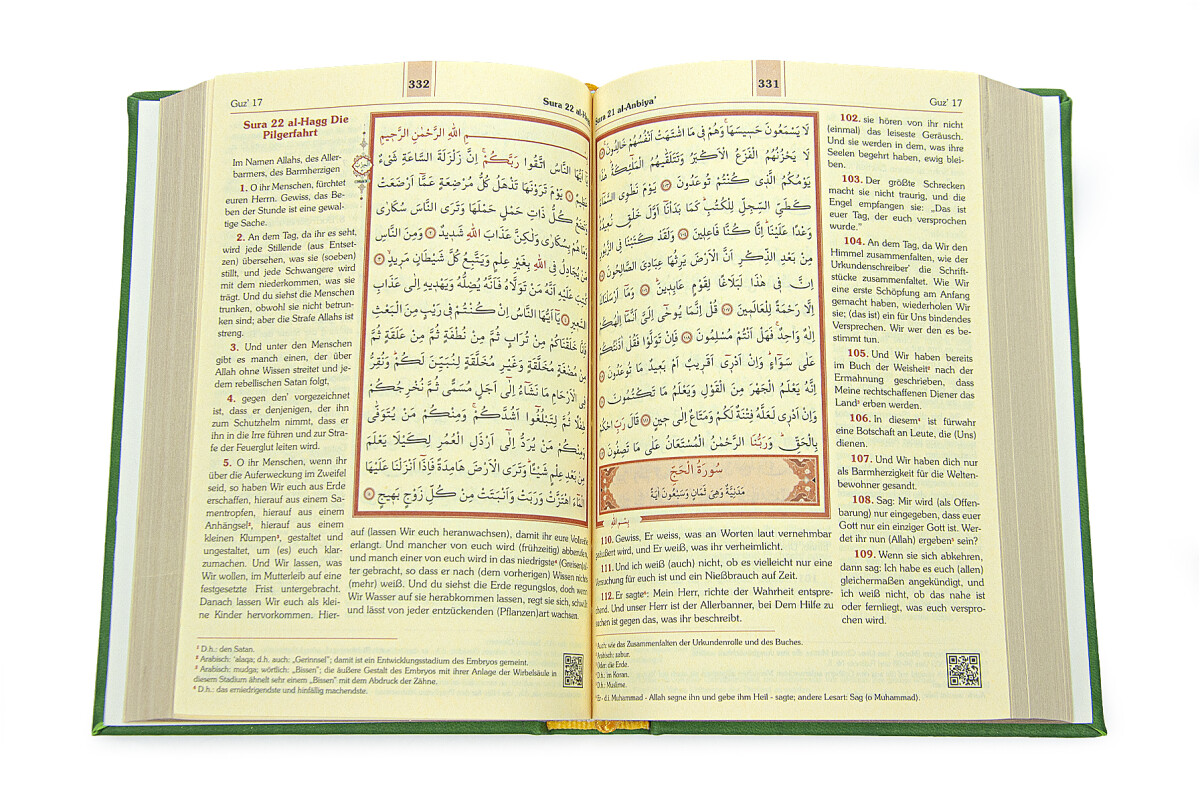 331
Guz' 17
Sura 21 al-Anbiya'
لَا يَسْمَعُونَ حَسِيسَهَا وَهُمْ فِى مَا اشْتَهَتْ اَنْفُسُهُمْ خَالِدُونَ ١٠٢
لَا يَحْزُنُهُمُ الْفَزَعُ الْاَكْبَرُ وَتَتَلَقّٰيهُمُ الْمَلٰٓئِكَةُ هٰذَا
يَوْمُكُمُ الَّذِى كُنْتُمْ تُوعَدُونَ ١٠٣ يَوْمَ نَطْوِى السَّمَٓاءَ
كَطَىِّ السِّجِلِّ لِلْكُتُبِ كَمَا بَدَاْنَٓا اَوَّلَ خَلْقٍ نُعِيدُهُ
وَعْدًا عَلَيْنَا اِنَّا كُنَّا فَاعِلِينَ ١٠٤ وَلَقَدْ كَتَبْنَا فِى الزَّبُورِ
مِنْ بَعْدِ الذِّكْرِ اَنَّ الْاَرْضَ يَرِثُهَا عِبَادِىَ الصَّالِحُونَ ١٠٥
اِنَّ فِى هٰذَا لَبَلَاغًا لِقَوْمٍ عَابِدِينَ ١٠٦ وَمَٓا اَرْسَلْنَاكَ
اِلَّا رَحْمَةً لِلْعَالَمِينَ ١٠٧ قُلْ اِنَّمَا يُوحٰٓى اِلَىَّ اَنَّمَٓا اِلٰهُكُمْ
اِلٰهٌ وَاحِدٌ فَهَلْ اَنْتُمْ مُسْلِمُونَ ١٠٨ فَاِنْ تَوَلَّوْا فَقُلْ اٰذَنْتُكُمْ
عَلٰى سَوَٓاءٍ وَاِنْ اَدْرِٓى اَقَرِيبٌ اَمْ بَعِيدٌ مَا تُوعَدُونَ ١٠٩
اِنَّهُ يَعْلَمُ الْجَهْرَ مِنَ الْقَوْلِ وَيَعْلَمُ مَا تَكْتُمُونَ ١١٠
وَاِنْ اَدْرِى لَعَلَّهُ فِتْنَةٌ لَكُمْ وَمَتَاعٌ اِلٰى حِينٍ ١١١ قَالَ رَبِّ احْكُمْ
بِالْحَقِّ وَرَبُّنَا الرَّحْمٰنُ الْمُسْتَعَانُ عَلٰى مَا تَصِفُونَ ١١٢
سُورَةُ الْحَجِّ
مَدَنِيَّةٌ وَهِىَ ثَمَانٍ وَسَبْعُونَ اٰيَةً
بِسْمِ اللهِ
102. sie hören von ihr nicht
(einmal) das leiseste Geräusch.
Und sie werden in dem, was ihre
Seelen begehrt haben, ewig blei-
ben.
103. Der größte Schrecken
macht sie nicht traurig, und die
Engel empfangen sie: „Das ist
euer Tag, der euch versprochen
wurde."
104. An dem Tag, da Wir den
Himmel zusammenfalten, wie der
Urkundenschreiber¹ die Schrift-
stücke zusammenfaltet. Wie Wir
eine erste Schöpfung am Anfang
gemacht haben, wiederholen Wir
sie; (das ist) ein für Uns bindendes
Versprechen. Wir wer den es be-
stimmt tun.
105. Und Wir haben bereits
im Buch der Weisheit² nach der
Ermahnung geschrieben, dass
Meine rechtschaffenen Diener das
Land³ erben werden.
106. In diesem⁴ ist fürwahr
eine Botschaft an Leute, die (Uns)
dienen.
107. Und Wir haben dich nur
als Barmherzigkeit für die Welten-
bewohner gesandt.
108. Sag: Mir wird (als Offen-
barung) nur eingegeben, dass euer
Gott nur ein einziger Gott ist. Wer-
det ihr nun (Allah) ergeben⁵ sein?
109. Wenn sie sich abkehren,
dann sag: Ich habe es euch (allen)
gleichermaßen angekündigt, und
ich weiß nicht, ob das nahe ist
oder fernliegt, was euch verspro-
chen wird.
110. Gewiss, Er weiss, was an Worten laut vernehmbar
geäußert wird, und Er weiß, was ihr verheimlicht.
111. Und ich weiß (auch) nicht, ob es vielleicht nur eine
Versuchung für euch ist und ein Nießbrauch auf Zeit.
112. Er sagte⁶: Mein Herr, richte der Wahrheit entspre-
chend. Und unser Herr ist der Allerbanner, bei Dem Hilfe zu
suchen ist gegen das, was ihr beschreibt.
Auch: wie das Zusammenfalten der Urkundenrolle und des Buches.
Arabisch: zabur.
Oder: die Erde.
D.h.: im Koran.
D.h.: Muslime.
Er d.i. Muhammad - Allah segne ihn und gebe ihm Heil - sagte; andere Lesart: Sag (o Muhammad).
332
Guz' 17
Sura 22 al-Hagg
مِ اللهِ الرَّحْمٰنِ الرَّحِيمِ
يَٓا اَيُّهَا النَّاسُ اتَّقُوا رَبَّكُمْ اِنَّ زَلْزَلَةَ السَّاعَةِ شَىْءٌ
عَظِيمٌ ١ يَوْمَ تَرَوْنَهَا تَذْهَلُ كُلُّ مُرْضِعَةٍ عَمَّٓا اَرْضَعَتْ
وَتَضَعُ كُلُّ ذَاتِ حَمْلٍ حَمْلَهَا وَتَرَى النَّاسَ سُكَارٰى
وَمَا هُمْ بِسُكَارٰى وَلٰكِنَّ عَذَابَ اللهِ شَدِيدٌ ٢ وَمِنَ النَّاسِ
مَنْ يُجَادِلُ فِى اللهِ بِغَيْرِ عِلْمٍ وَيَتَّبِعُ كُلَّ شَيْطَانٍ مَرِيدٍ ٣
كُتِبَ عَلَيْهِ اَنَّهُ مَنْ تَوَلَّاهُ فَاَنَّهُ يُضِلُّهُ وَيَهْدِيهِ اِلٰى عَذَابِ
السَّعِيرِ ٤ يَٓا اَيُّهَا النَّاسُ اِنْ كُنْتُمْ فِى رَيْبٍ مِنَ الْبَعْثِ
فَاِنَّا خَلَقْنَاكُمْ مِنْ تُرَابٍ ثُمَّ مِنْ نُطْفَةٍ ثُمَّ مِنْ عَلَقَةٍ ثُمَّ
مِنْ مُضْغَةٍ مُخَلَّقَةٍ وَغَيْرِ مُخَلَّقَةٍ لِنُبَيِّنَ لَكُمْ وَنُقِرُّ
فِى الْاَرْحَامِ مَا نَشَٓاءُ اِلٰٓى اَجَلٍ مُسَمًّى ثُمَّ نُخْرِجُكُمْ
طِفْلًا ثُمَّ لِتَبْلُغُٓوا اَشُدَّكُمْ وَمِنْكُمْ مَنْ يُتَوَفّٰى
وَمِنْكُمْ مَنْ يُرَدُّ اِلٰٓى اَرْذَلِ الْعُمُرِ لِكَيْلَا يَعْلَمَ
مِنْ بَعْدِ عِلْمٍ شَيْـًٔا وَتَرَى الْاَرْضَ هَامِدَةً فَاِذَٓا اَنْزَلْنَا عَلَيْهَا
الْمَٓاءَ اهْتَزَّتْ وَرَبَتْ وَاَنْبَتَتْ مِنْ كُلِّ زَوْجٍ بَهِيجٍ ٥
Sura 22 al-Hagg Die
Pilgerfahrt
Im Namen Allahs, des Aller-
barmers, des Barmherzigen
1. O ihr Menschen, fürchtet
euren Herrn. Gewiss, das Be-
ben der Stunde ist eine gewal-
tige Sache.
2. An dem Tag, da ihr es seht,
wird jede Stillende (aus Entset-
zen) übersehen, was sie (soeben)
stillt, und jede Schwangere wird
mit dem niederkommen, was sie
trägt. Und du siehst die Menschen
trunken, obwohl sie nicht betrun-
ken sind; aber die Strafe Allahs ist
streng.
3. Und unter den Menschen
gibt es manch einen, der über
Allah ohne Wissen streitet und je-
dem rebellischen Satan folgt,
4. gegen den² vorgezeichnet
ist, dass er denjenigen, der ihn
zum Schutzhelm nimmt, dass er
ihn in die Irre führen und zur Stra-
fe der Feuerglut leiten wird.
5. O ihr Menschen, wenn ihr
über die Auferweckung im Zweifel
seid, so haben Wir euch aus Erde
erschaffen, hierauf aus einem Sa-
mentropfen, hierauf aus einem
Anhängsel⁴, hierauf aus einem
kleinen Klumpen⁵, gestaltet und
ungestaltet, um (es) euch klar-
zumachen. Und Wir lassen, was
Wir wollen, im Mutterleib auf eine
festgesetzte Frist untergebracht.
Danach lassen Wir euch als klei-
ne Kinder hervorkommen. Hier-
auf (lassen Wir euch heranwachsen), damit ihr eure Vollreife
erlangt. Und mancher von euch wird (frühzeitig) abberufen,
und manch einer von euch wird in das niedrigste⁶ (Greisen)al-
ter gebracht, so dass er nach (dem vorherigen) Wissen nichts
(mehr) weiß. Und du siehst die Erde regungslos, doch wenn
Wir Wasser auf sie herabkommen lassen, regt sie sich, schwillt
und lässt von jeder entzückenden (Pflanzen)art wachsen.
D.h.: den Satan.
Arabisch: 'alaqa; d.h. auch: „Gerinnsel"; damit ist ein Entwicklungsstadium des Embryos gemeint.
Arabisch: mudga; wörtlich: „Bissen"; die äußere Gestalt des Embryos mit ihrer Anlage der Wirbelsäule in
diesem Stadium ähnelt sehr einem „Bissen" mit dem Abdruck der Zähne.
D.h.: das erniedrigendste und hinfällig machendste.